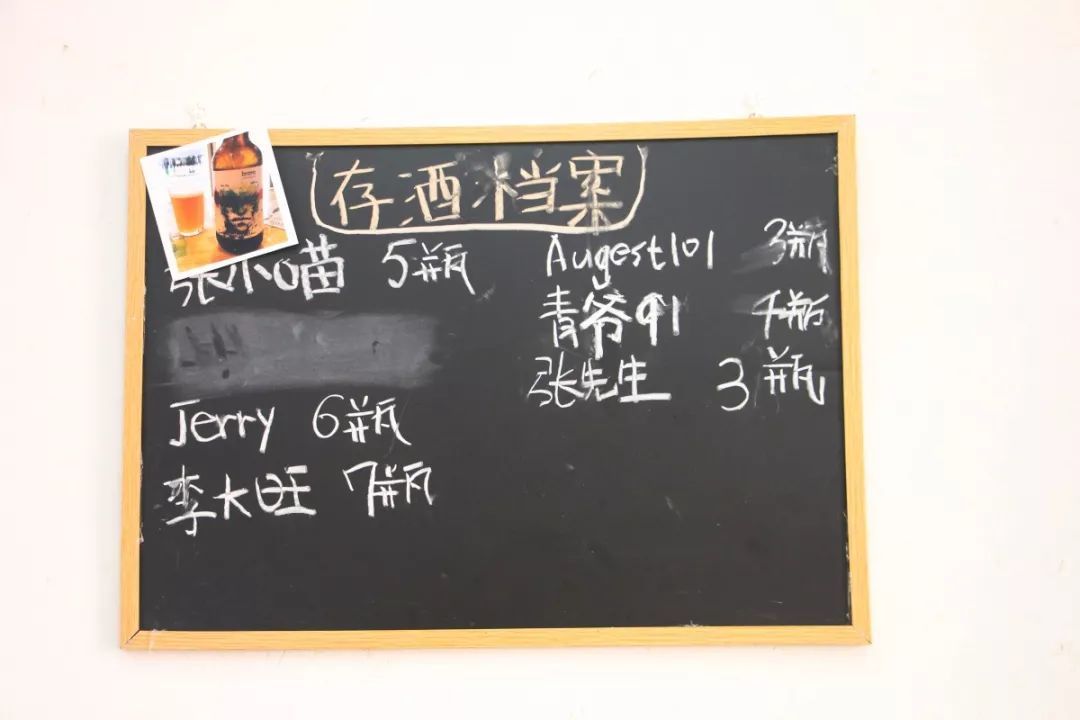 存酒档案
张小喵 5瓶
Jerry 6瓶
李大旺 7瓶
Augest101 3瓶
青爷91 瓶
张先生 3瓶